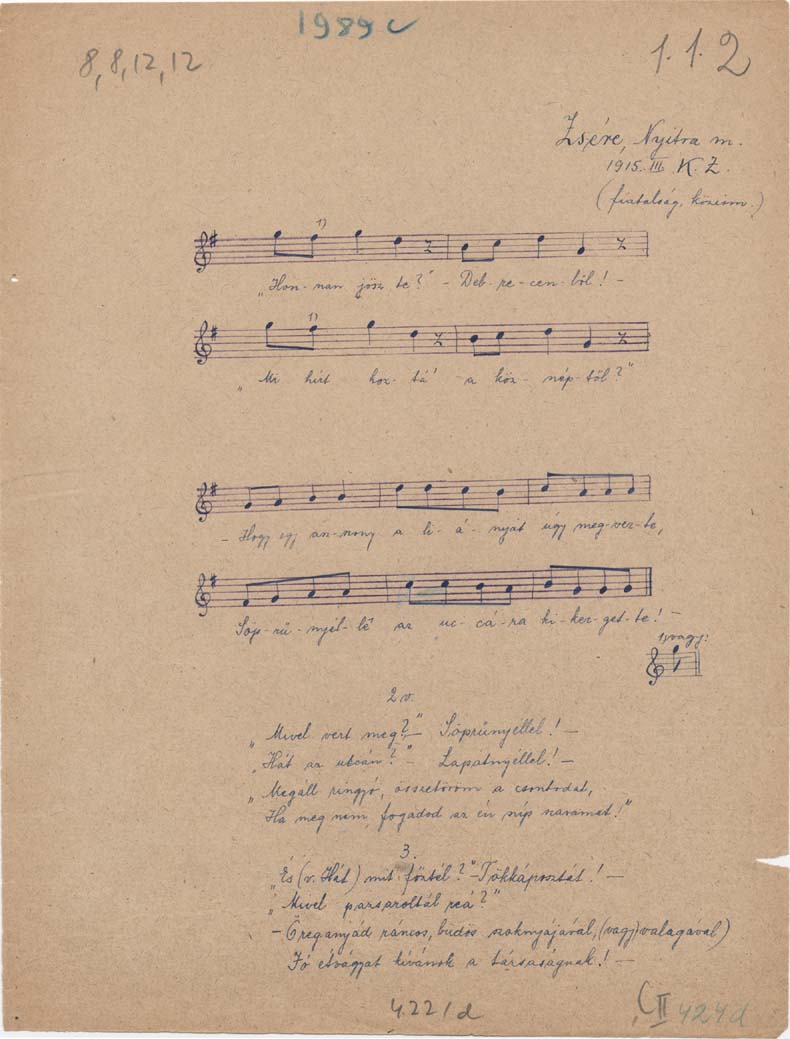 1989c
8, 8, 12, 12
1.1.2
Zsére, Nyitra m.
1915. III. K. Z.
(fiatalság, közism.)
1)
„Hon-nan jösz te?" - Deb-re-cen-ből! -
1)
„Mi hírt hoz-tá' a köz-nép-től?"
- Hogy egy ász-szony a li-á-nyát úgy meg-ver-te,
Söp-rű-nyél-lê az uc-cá-ra ki-ker-get-te! -
1) vagy:
2 v.
„Mivel vert meg?" - Söprűnyéllel! -
„Hát az utcán?" - Lapátnyéllel! -
„Megáll ringyó, összetöröm a csontodat,
Ha meg nem fogadod az én szavamat!"
3.
„És (v. Hát) mit főztél?" - Tökkáposztát! -
„Mivel pazsaroltál reá?"
- Öreganyád ráncos, budös szoknyájával, (vagy) valagával)
Jó étvágyat kívánok a társaságnak! -
422/d
C II 424d